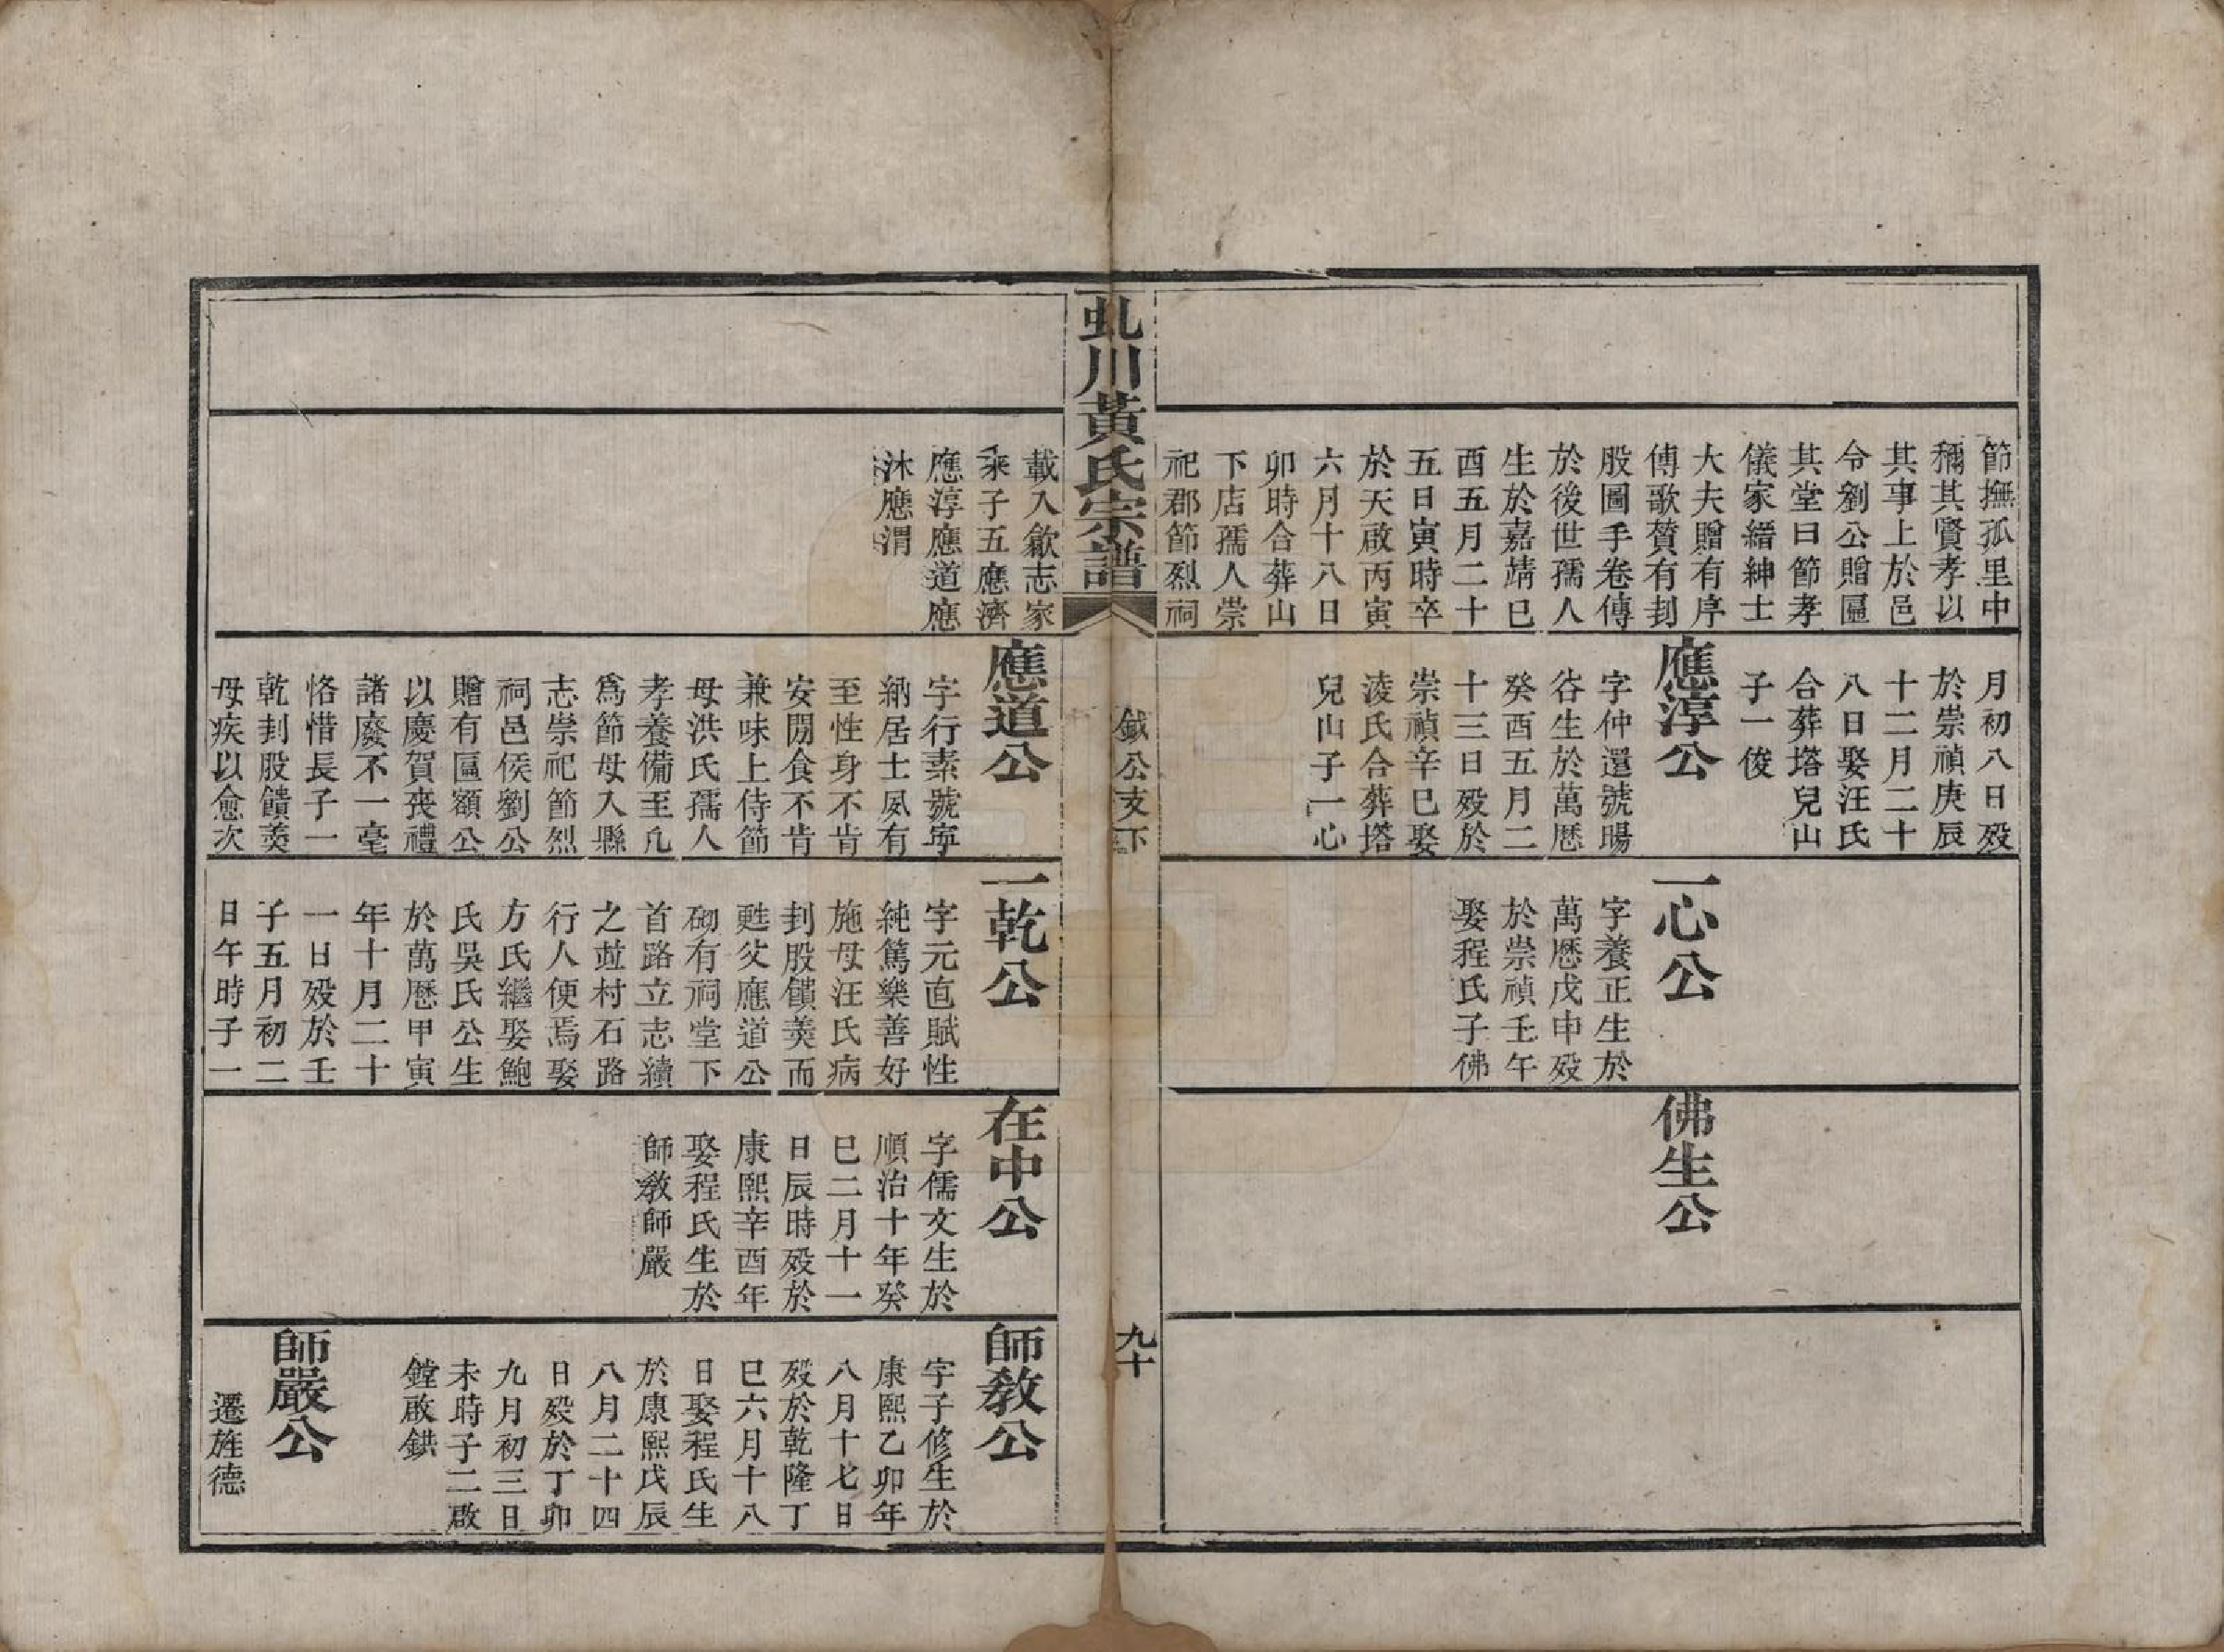 節撫孤里中
稱其賢孝以
其事上於邑
令劉公贈匾
其堂曰節孝
儀家縉紳士
大夫贈有序
傳歌贊有刲
股圖手卷傳
於後世孺人
生於嘉靖巳
酉五月二十
五日寅時卒
於天啟丙寅
六月十八日
卯時合葬山
下店孺人崇
祀郡節烈祠
月初八日歿
於崇禎庚辰
十二月二十
八日娶汪氏
合葬塔兒山
子一俊
應淳公
字仲還號暘
谷生於萬歷
癸酉五月二
十三日歿於
崇禎辛巳娶
淩氏合葬塔
兒山子一心
一心公
字養正生於
萬歷戊申歿
於崇禎壬午
娶程氏子佛
佛生公
虬川黃氏宗譜
鉞公支下
九十
載入歙志家
乘子五應濟
應淳應道應
沐應渭
應道公
字行素號寧
納居士夙有
至性身不肯
安閒食不肯
兼味上侍節
母洪氏孺人
孝養備至凡
為節母入縣
志崇祀節烈
祠邑侯劉公
贈有匾額公
以慶賀喪禮
諸廢不一毫
恪惜長子一
乾刲股饋羹
母疾以愈次
一乾公
字元直賦性
純篤樂善好
施母汪氏病
刲股饋羹而
甦父應道公
砌有祠堂下
首路立志續
之並村石路
行人便焉娶
方氏繼娶鮑
氏吳氏公生
於萬歷甲寅
年十月二十
一日歿於壬
子五月初二
日午時子一
在中公
字儒文生於
順治十年癸
巳二月十一
日辰時歿於
康熙辛酉年
娶程氏生於
師教師嚴
師教公
字子修生於
康熙乙卯年
八月十七日
歿於乾隆丁
巳六月十八
日娶程氏生
於康熙戊辰
八月二十四
日歿於丁卯
九月初三日
未時子二啟
鏜啟鉷
師嚴公
遷旌德